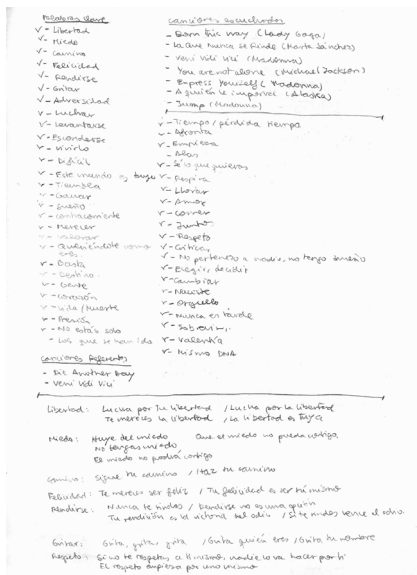 Palabras clave
√ - Libertad
√ - Miedo
√ - Camino
√ - Felicidad
√ - Rendirse
√ - Gritar
√ - Adversidad
√ - Luchar
√ - Levantarse
√ - Esconderse
√ - Vivirlo
√ - Difícil
√ - Este mundo es tuyo
√ - Tiembla
√ - Ganar
√ - Sueño
√ - Merecer
√ - Valorar
√ - Queriéndote como eres.
√ - Basta
√ - Destino.
√ - Gente
√ - Corazón
√ - Vida / Muerte
√ - Presión
√ - No estás solo
- Los que se han ido
Canciones Referentes
- Die Another Day
- Veni Vidi Vici
Canciones escuchadas
- Born this way (Lady Gaga)
- La que nunca se rinde (Marta Sánchez)
- Veni Vidi Vici (Madonna)
- You are not alone (Michael Jackson)
- Express Yourself (Madonna)
- A quién le importa (Alaska)
- Jump (Madonna)
√ - Tiempo / pérdida tiempo
√ - Afronta
√ - Empieza
√ - Alas
√ - Sé lo que quieras
√ - Respira
√ - Llorar
√ - Amor
√ - Correr
√ - Junto
√ - Respeto
√ - Critica
√ - No pertenezco a nadie, no tengo dueño
√ - Elegir, decidir
√ - Cambiar
√ - Naciste
√ - Orgullo
√ - Nunca es tarde
√ - Valentía
√ - Mismo DNA
Libertad: Lucha por Tu libertad / Lucha por la libertad
Te mereces la libertad / La libertad es Tuya
Miedo: Huye del miedo Que el miedo no pueda contigo,
No tengas miedo
El miedo no podrá contigo
Camino: Sigue tu camino / Haz tu camino
Felicidad: Te mereces ser feliz / Tu felicidad es ser tú mismo
Rendirse: Nunca te rindas / Rendirse no es una opción
Tu rendición es la victoria del odio / Si te rindes vence el odio.
Gritar: Grita, grita, grita / Grita quién eres / Grita tu nombre
Respeto: Si no te respetas a ti mismo, nadie lo va hacer por ti
El respeto empieza por uno mismo